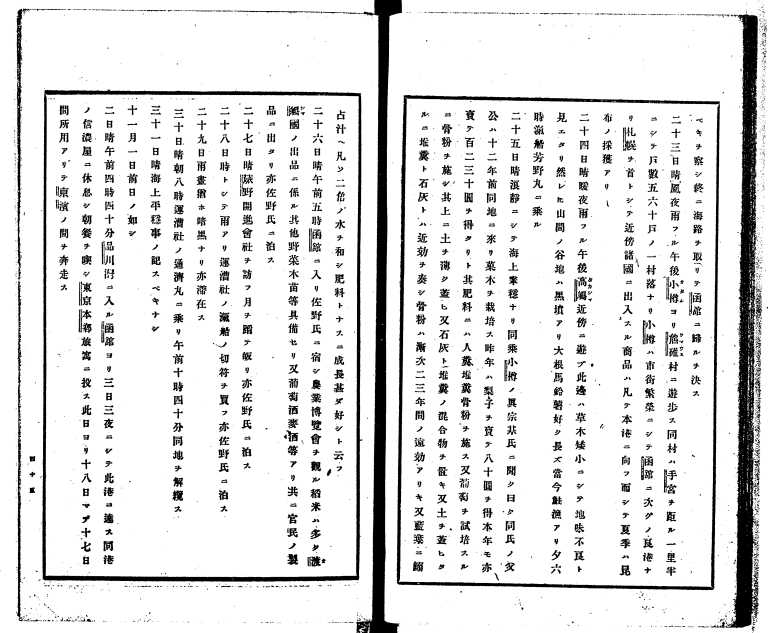 ベキヲ察シ終ニ海路ヲ取リテ函館ニ歸ルヲ決ス
二十三日晴風夜雨フル午後小樽ヨリ村ニ遊歩ス同村ハ手宮ヲ距ル一里半
ニシテ戸數五六十戸ノ一村落ナリ小樽ハ市街繁栄ニシテ函館ニ次グノ良港ナ
リ札幌ヲ首トシテ近傍諸國ニ出入スル商品ハ凡テ本港ニ向フ而シテ夏季ハ昆
布ノ採獲アリ
二十四日晴暖夜雨フル午後高嶋近傍ニ遊ブ此邊ハ草木矮小ニシテ地味不良ト
見エタリ然レヒ山間ノ谷地ハ黒墳アリ大根馬鈴薯好ク長ズ當今鮭漁アリ夕六
時滊船芳野丸ニ乘ル
二十五日晴濵靜ニシテ海上業穩ナリ同乘小樽ノ興宗基氏ニ聞ク曰ク同氏ノ父
公ハ十二年前同地ニ來リ菓木ヲ栽培ス昨年ハ梨子ヲ賣テ八十圓ヲ得本年モ亦
賣テ百二三十圓ヲ得タリト其肥料ニハ人糞堆糞骨粉ヲ施ス又葡萄ヲ試培スル
ニ骨粉ヲ施シ其上ニ土ヲ薄ク蓋ヒ又石灰ト堆糞ノ混合物ヲ置キ又土ヲ蓋ヒタ
ルニ堆糞ト石灰トハ近効ヲ奏シ骨粉ハ漸次二三年間ノ遠効アリキ又藍葉ニ鰯
占汁ヘ凡ソ二倍ノ水ヲ和シ肥料トナスニ成長甚ダ好シト云フ
二十六日晴午前五時函館ニ入リ佐野氏ニ宿シ農業博覽會ヲ觀ル稻米ハ多ク渡
嶋國ノ出品ニ係ル其他野菜木苗等具備セリ又葡萄酒麥酒等アリ共ニ官民ノ製
品ニ出タリ亦佐野氏ニ泊ス
二十七日晴野開進會社ヲ訪フ月ヲ踏テ皈リ亦佐野氏ニ泊ス
二十八日時トシテ雨アリ運漕社ノ滊船ノ切符ヲ買フ亦佐野氏ニ泊ス
二十九日雨晝猶ホ暗黒ナリ亦滯在ス
三十日晴朝八時運漕社ノ通濟丸ニ乘リ午前十時四十分同地ヲ解纜ス
三十一日晴海上平穩事ノ記スベキナシ
十一月一日前日ノ如シ
二日晴午前四時四十分品川灣ニ入ル函館ヨリ三日三夜ニシテ此港ニ達ス同港
ノ信濃屋ニ休息シ朝餐ヲ喫シ東京本郷旅寓ニ投ス此日ヨリ十八日マデ十七日
間所用アリテ東濱ノ間ヲ奔走ス
四十五